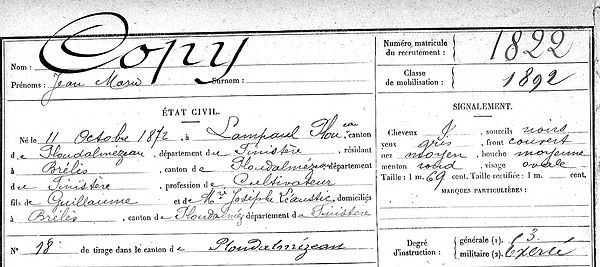 Copy
Nom :
Prénoms : Jean Marie Surnom :
Numéro matricule du recrutement : 1822
Classe de mobilisation : 1892
ÉTAT CIVIL.
Né le 11 Octobre 1872, à Lampaul Plou eau, canton
de Ploudalmézeau, département du Finistère, résidant
à Brélès, canton de Ploudalmézeau, département
du Finistère, profession de Cultivateur
fils de Guillaume et de Josèphe Léaustic, domiciliés
à Brélès, canton de Ploudalmé département du Finistère
N° 18 de tirage dans le canton de Ploudalmézeau
SIGNALEMENT.
Cheveux sourcils noirs
yeux gris front couvert
nez moyen, bouche moyenne
menton rond, visage ovale
Taille : 1 m. 69 cent. Taille rectifiée : 1 m. cent.
MARQUES PARTICULIÈRES :
Degré d'instruction : générale (1). 3
militaire (2). Exercé